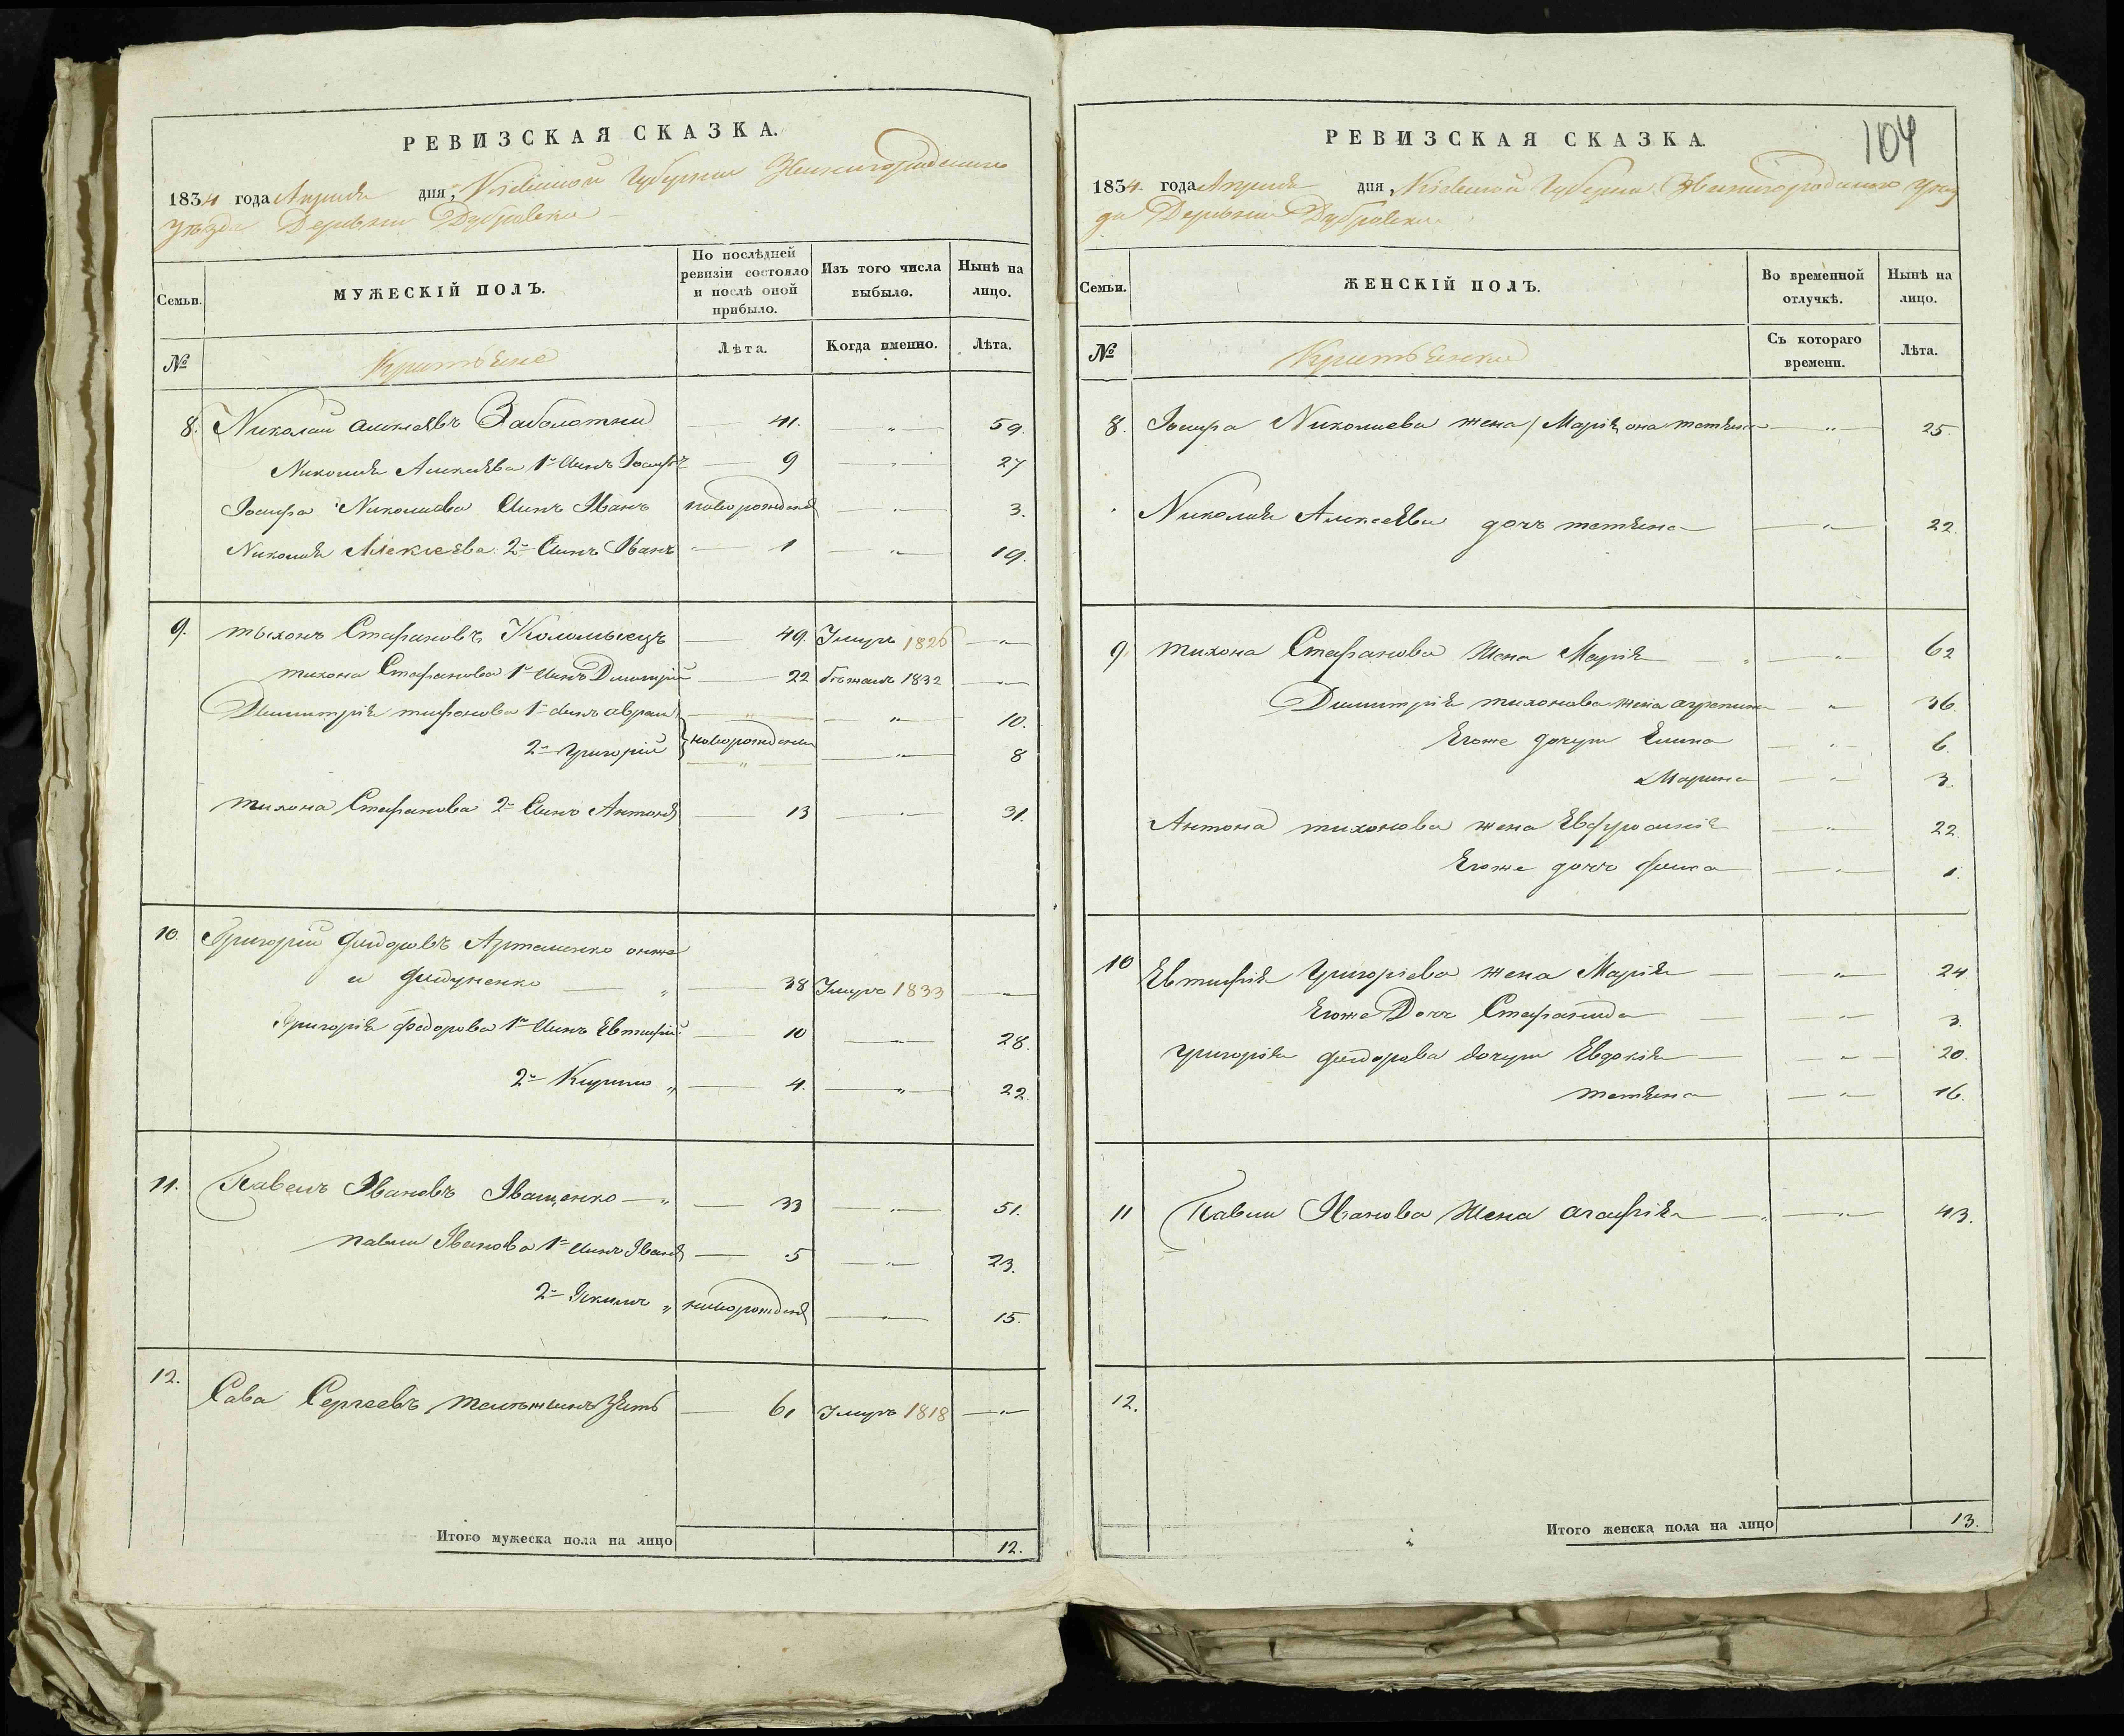 РЕВИЗСКАЯ СКАЗКА.
1834 года Апреля дня, Кіевской Губерніи Звенигородскаго
уѣзда Деревни Дубровки
Семьи.
МУЖЕСКІЙ ПОЛЪ.
По послѣдней ревизіи состояло и послѣ оной прибыло.
Изъ того числа выбыло.
Нынѣ на лицо.
№
Лѣта.
Когда именно.
Лѣта.
8. Николай Заболотни 41. 59.
Николая Алексѣева 1й Сынъ Іосифъ 9 27
Іосифа Николаева Сынъ Іванъ новорожденъ 3.
Николая Алексѣева 2й Сынъ Іванъ 1 19.
9. тыхонъ Стефановъ Коломыецъ 49. Умеръ 1826
тихона Стефанова 1й Сынъ Димитрій 22 бѣжалъ 1832
Димитрія тихонова 1й Сынъ аврам 10.
2й григорій новорождени 8
тихона Стефанова 2й Сынъ Антонъ 13 31.
10. Григорій Фиодоровъ Артеменко онже
и Федуненко 38 Умеръ 1833
Григорія Федорова 1й Сынъ Евтифій 10 28.
2й Кирило 4. 22.
11. Павелъ Івановъ Іващенко 33 51.
павла Іванова 1й Сынъ Іванъ 5 23.
2й Якимъ новорожденъ 15.
12. Сава Сергеевъ зять 61 Умеръ 1818
Итого мужеска пола на лицо 12.
104
РЕВИЗСКАЯ СКАЗКА.
1834. года Апреля дня, Кіевской Губерніи Звенигородскаго уѣз
да Деревни Дубровки
Семьи.
ЖЕНСКІЙ ПОЛЪ.
Во временной отлучкѣ.
Нынѣ на лицо.
№
Съ котораго времени.
Лѣта.
8. Іосифа Николаева жена Марія 25.
Николая Алексеева дочь 22.
9. тихона Стефанова жена Марія 62
Димитрія тихонова жена агрепина 36.
Егоже дочери Елена 6.
Марина 3.
Антона тихонова жена Евфросинія 22.
Егоже дочь 1.
10 Евтифія Григоріева жена Марія 24.
Егоже Дочь Стефанида 3.
григорія фиодорова дочери Евдокія 20.
16.
11 Павла Іванова жена агафія 43.
12.
Итого женска пола на лицо 13.